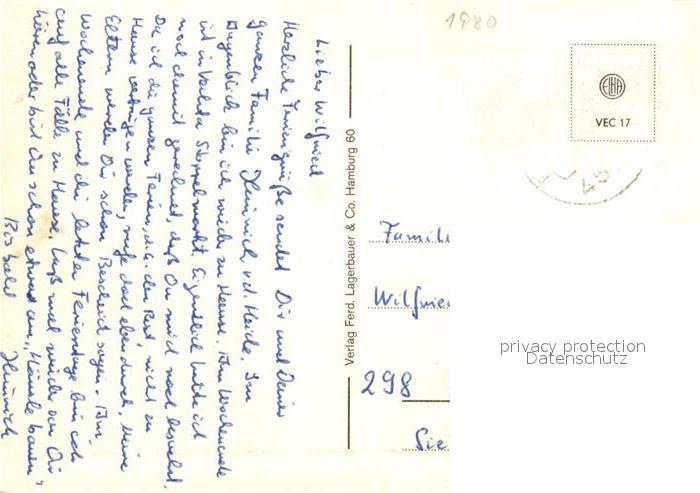 1980
VEC 17
Lieber Wilfried
Herzliche Feriengrüße sendet Dir und Deiner
ganzen Familie Heinrich v.d. Heide. Im
Augenblick bin ich wieder zu Hause. Am Wochenende
ist in Vechta Stoppelmarkt. Eigentlich hatte ich
noch damit gerechnet, daß Du mich noch besuchst.
Da ich die ganzen Ferien, d.h. den Rest, nicht zu
Hause verbringen werde, rufe doch eben durch. Meine
Eltern werden Dir schon Bescheid sagen. Am
Wochenende und die letzten Ferientage bin ich
auf alle Fälle zu Hause. Laß mal was von Dir
hören oder bist Du schon etwas am
Bis bald
Heinrich
Verlag Ferd. Lagerbauer & Co. Hamburg 60
Famili
Wilfrie
298
Sie
privacy protection
Datenschutz